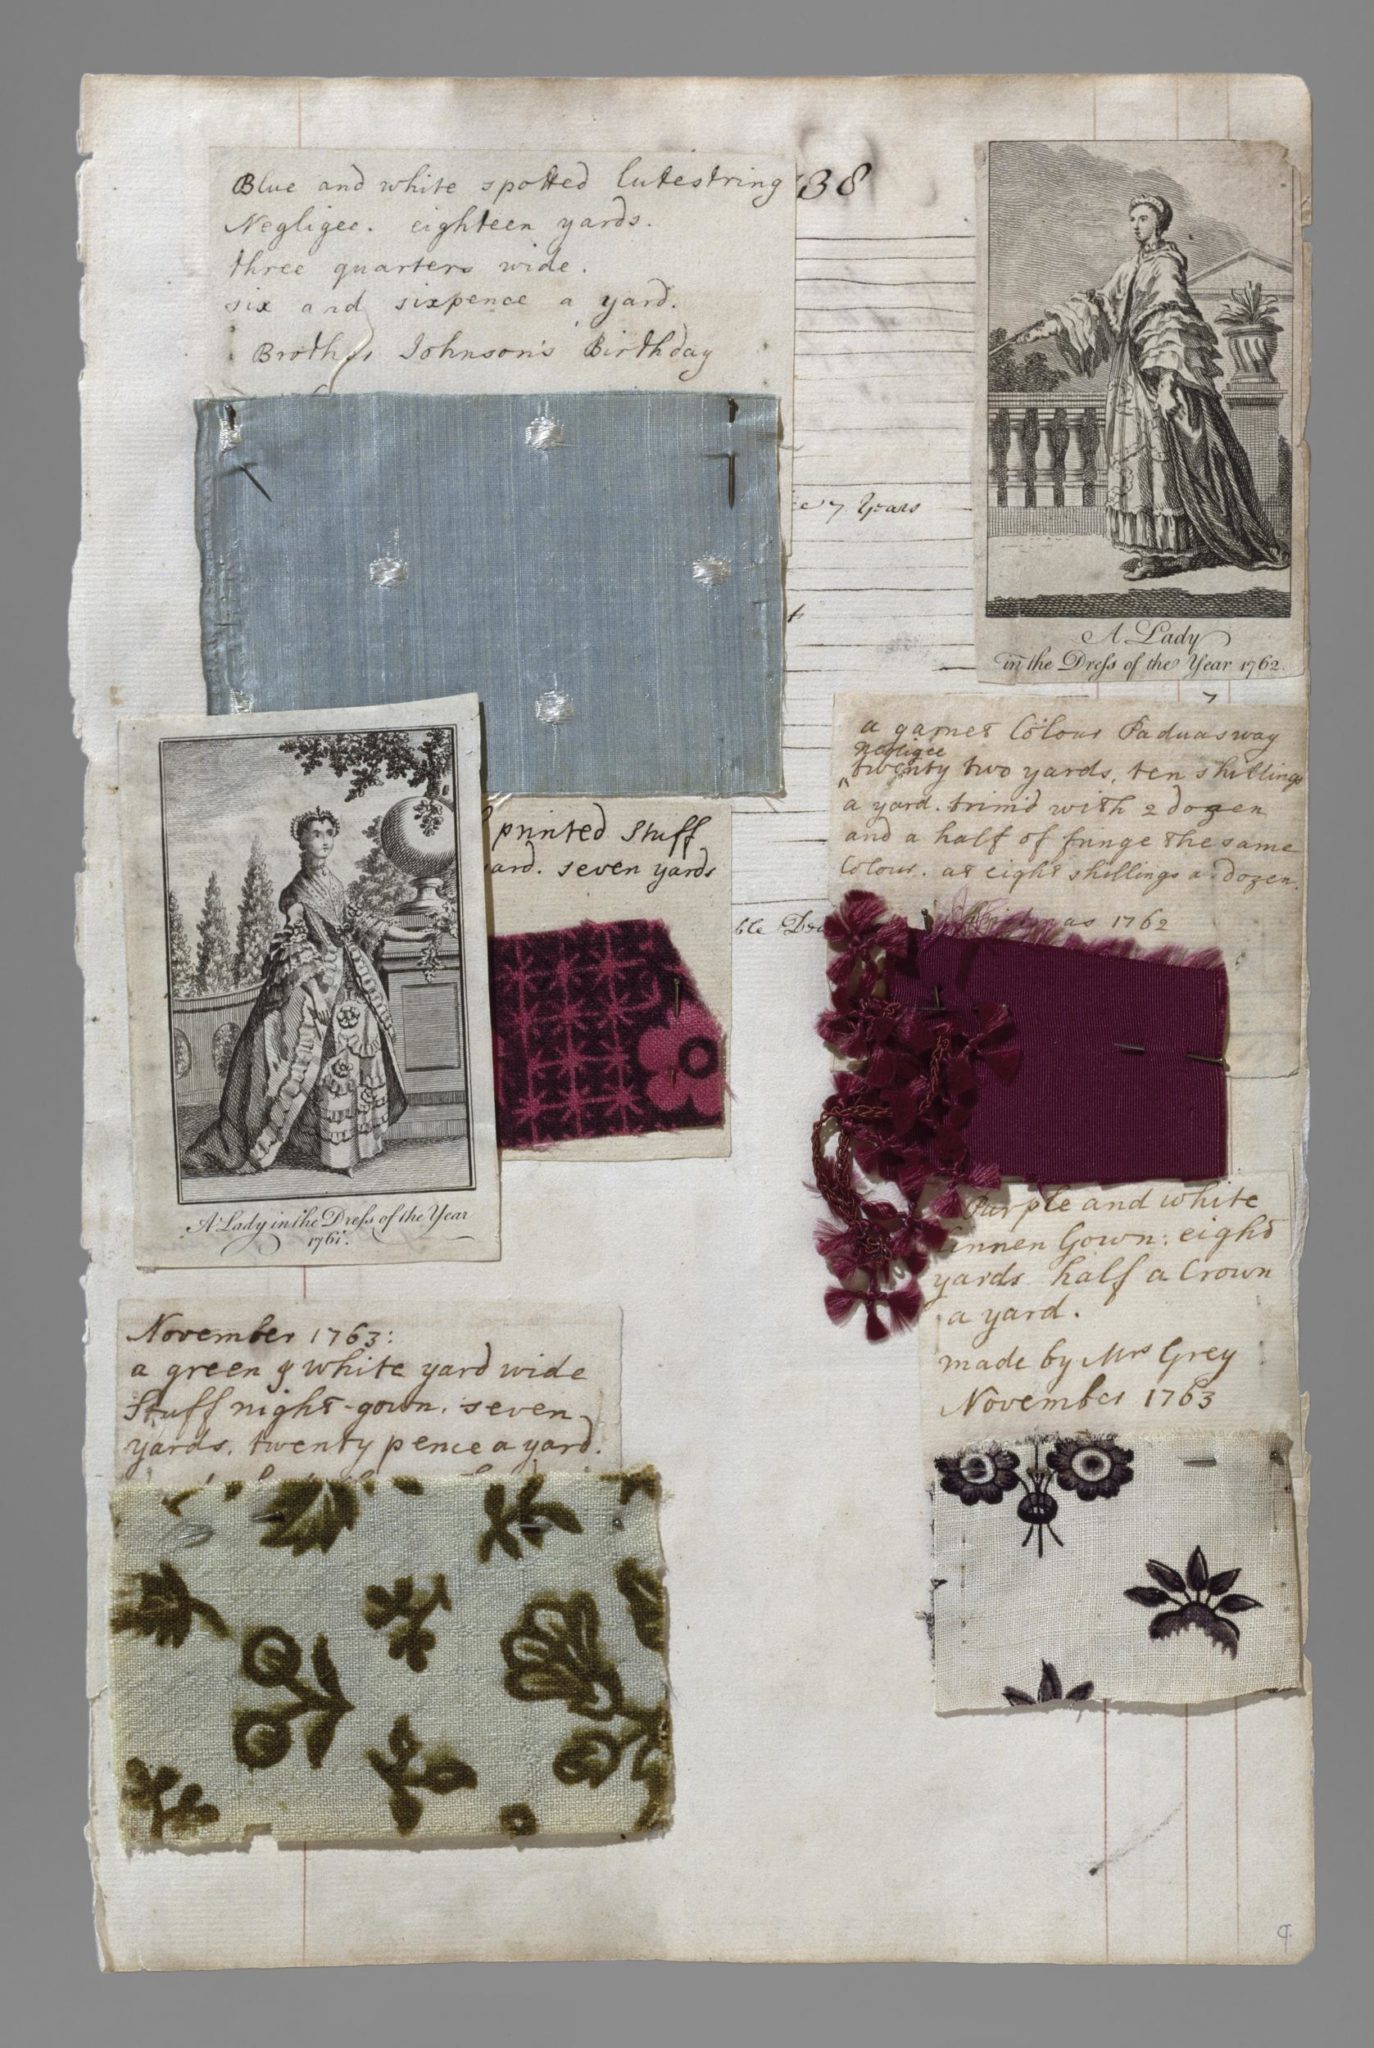 Blue and white spotted lutestring
Negligee. eighteen yards.
three quarters wide.
six and sixpence a yard.
Brother Johnson's Birthday
38
7 Years
A Lady
in the Dress of the Year 1762.
a garnet Colour Paduasway
negligee
twenty two yards, ten shillings
a yard. trim'd with 2 dozen
and a half of fringe the same
Colour. at eight shillings a dozen.
1762
printed Stuff
yard. seven yards
A Lady in the Dress of the Year
1761.
Purple and white
Linnen Gown: eight
yards half a Crown
a yard.
made by Mrs Grey
November 1763
November 1763:
a green & white yard wide
Stuff night-gown. seven
yards. twenty pence a yard.
9